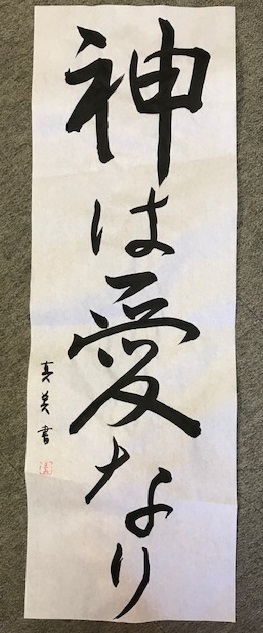 神は愛なり
真美書